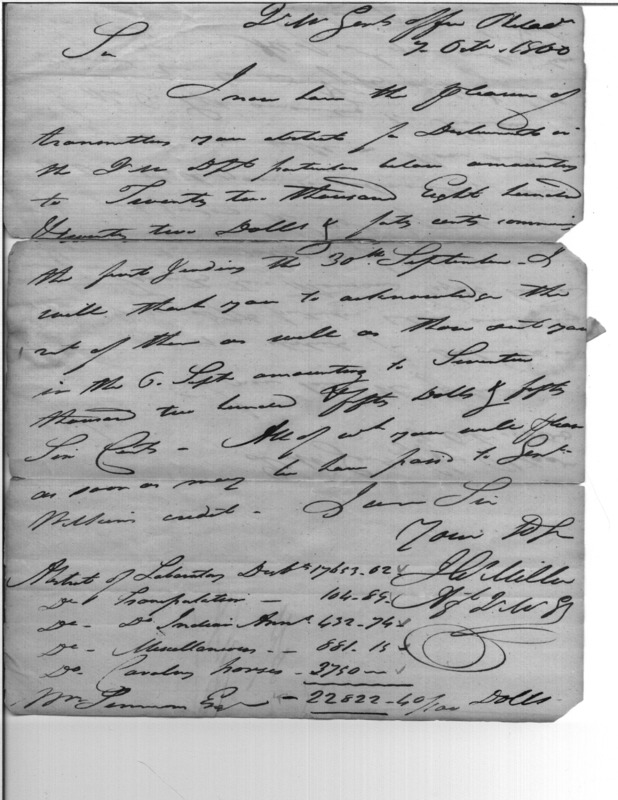 Qr Mr Genls office Philada
7 Octr. 1800
Sir
I now have the pleasure of
transmitting you abstracts for Disbursements in
the Q M Dept particulars below amounting
to Twenty two thousand Eight hundred
& twenty two Dolls & forty cents
the 30th September I
will thank you to acknowledge the
rct of them as well as those sent you
in the 6. Sept amounting to Seventeen
thousand two hundred & fifty Dolls & fifty
Six Cents - All of wh you will please
as soon as may be have passed to Genl
Wilkins credit -
I am Sir
Your
Abstract of Laboratory Disbts 17653.62
Do Transportation - 104.89
Do - Do Indian Annts 432.74
Do - Miscellaneous - 881.15
Do Cavalry horses - 3750 -
J W Miller
Wm Simmons Esqr - 22822-40/100 Dolls.